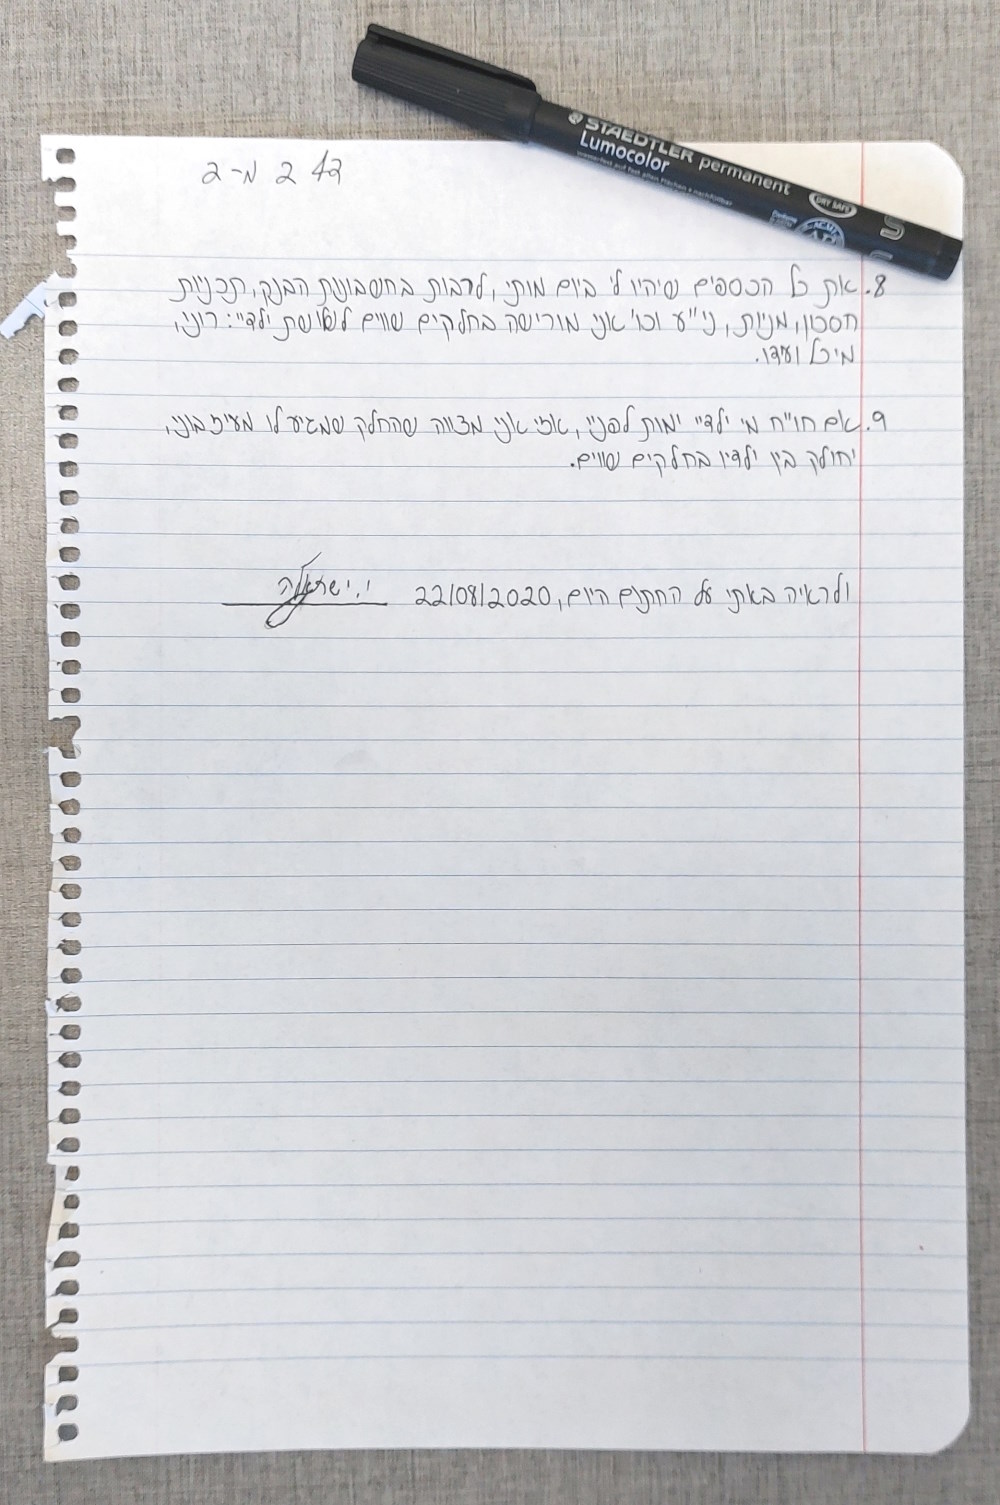 דף 2 מ-2
STAEDTLER permanent
Lumocolor
DRY SAFE
S
8. את כל הכספים שיהיו לי ביום מותי, לרבות בחשבונות הבנק, תכניות
חסכון, מניות, ני"ע וכו' אני מורישה בחלקים שווים לשלושת ילדיי: רוני,
מיכל ועידו.
9. אם חו"ח מי מילדיי ימות לפניי, אזי אני מצווה שהחלק שמגיע לו מעיזבוני,
יחולק בין ילדיו בחלקים שווים.
ולראיה באתי על החתום היום, 22/08/2020 י. ישראלה